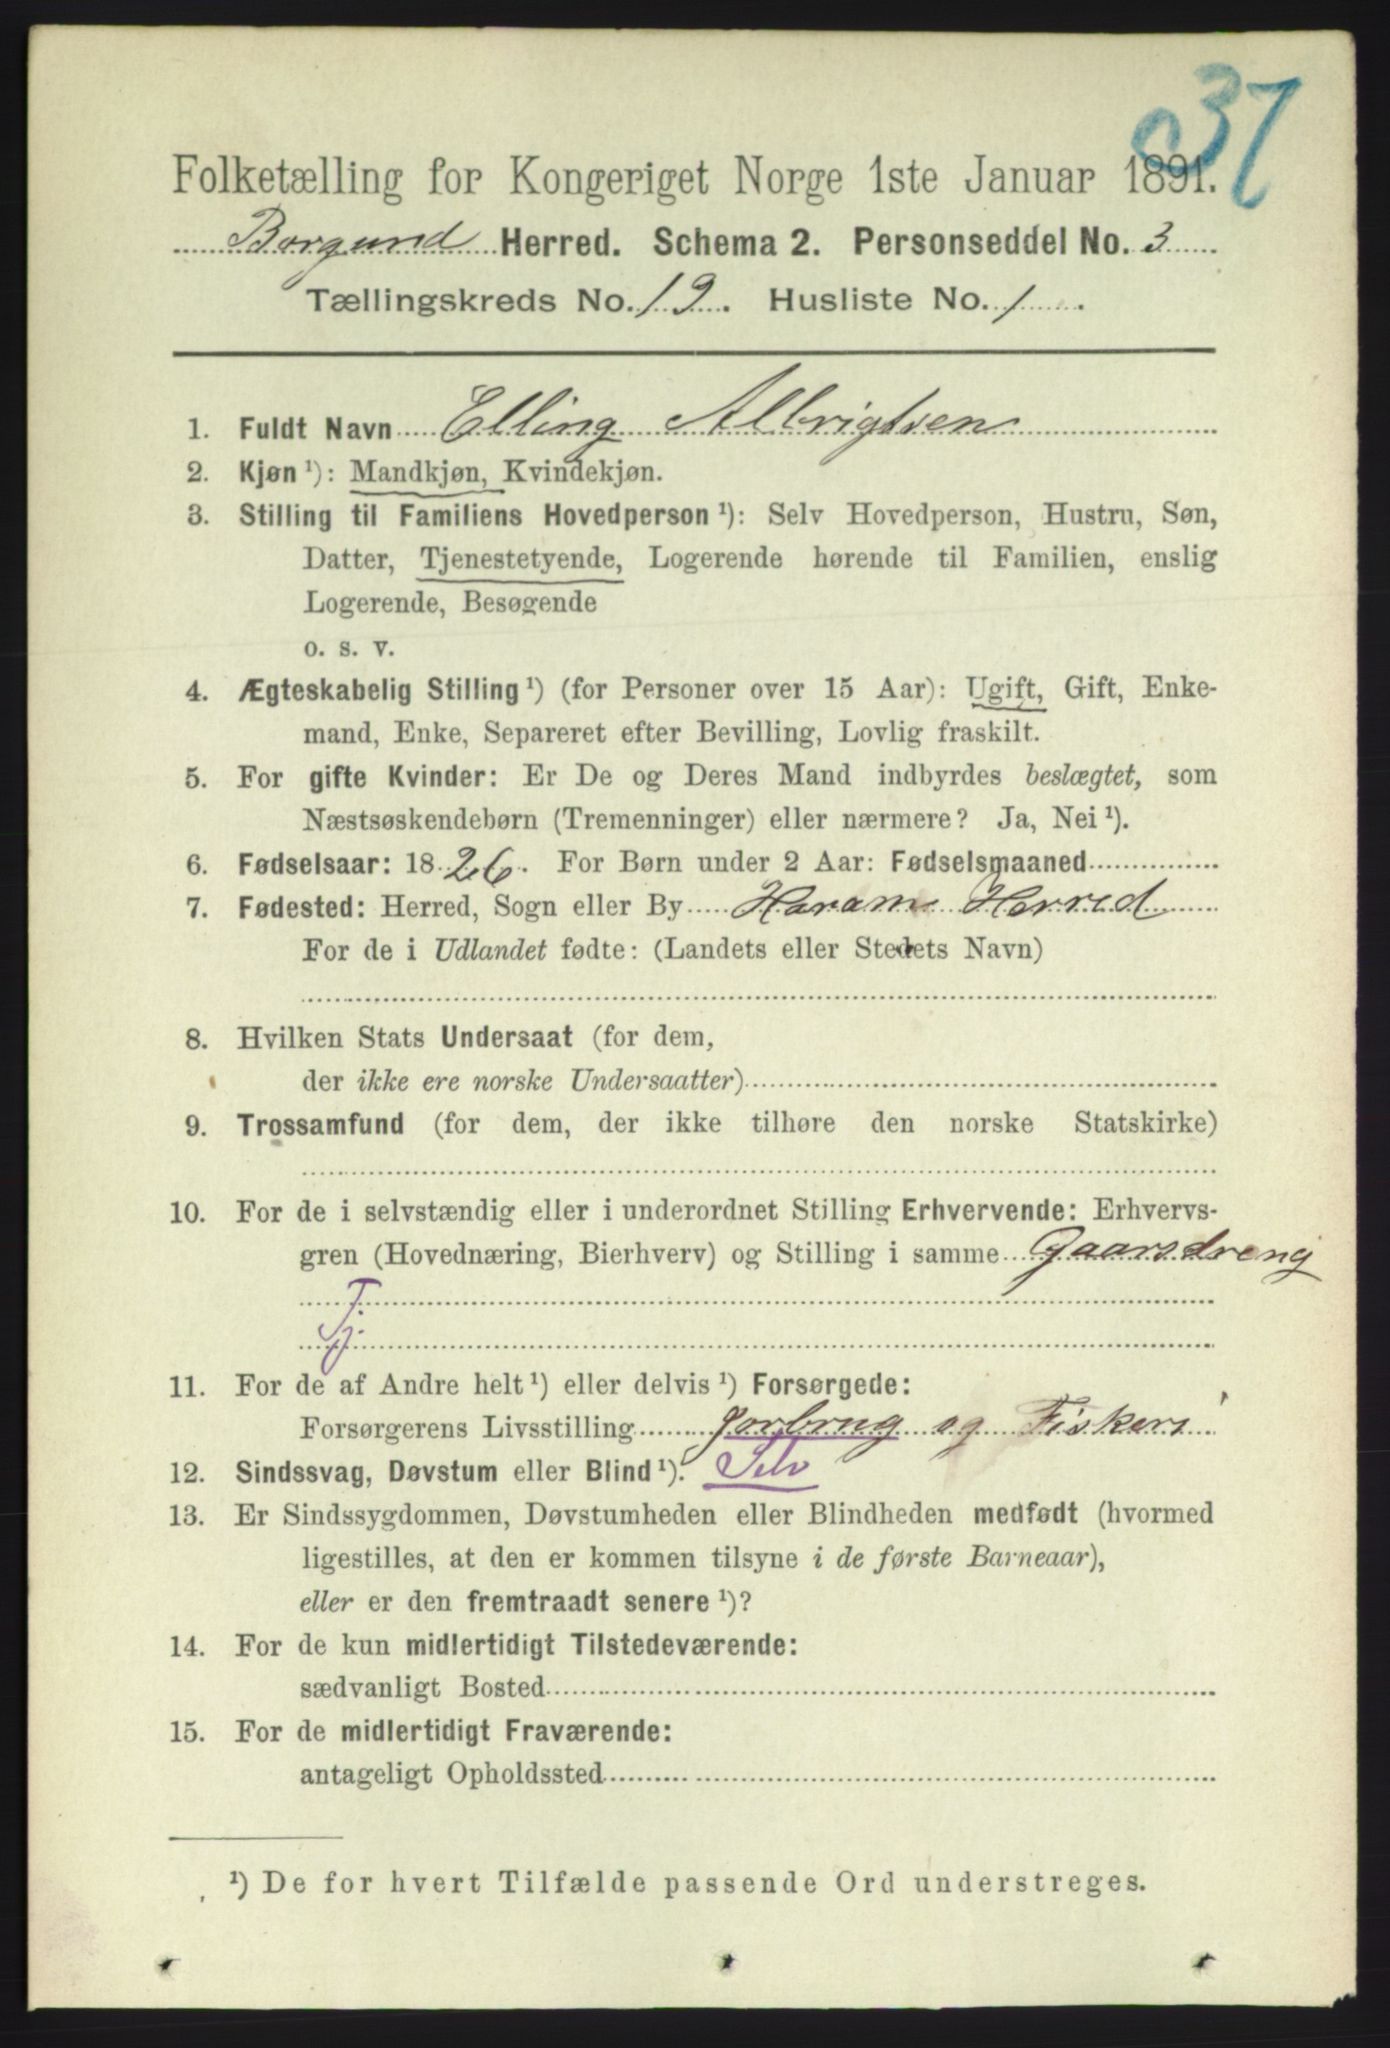 37
Folketælling for Kongeriget Norge 1ste Januar 1891.
Borgund Herred. Schema 2. Personseddel No. 3
Tællingskreds No. 12. Husliste No. 1.
1. Fuldt Navn Elling Albrigtsen
2. Kjøn ¹): Mandkjøn, Kvindekjøn.
3. Stilling til Familiens Hovedperson ¹): Selv Hovedperson, Hustru, Søn,
Datter, Tjenestetyende, Logerende hørende til Familien, enslig
Logerende, Besøgende
o. s. v.
4. Ægteskabelig Stilling ¹) (for Personer over 15 Aar): Ugift, Gift, Enke-
mand, Enke, Separeret efter Bevilling, Lovlig fraskilt.
5. For gifte Kvinder: Er De og Deres Mand indbyrdes beslægtet, som
Næstsøskendebørn (Tremenninger) eller nærmere? Ja, Nei ¹).
6. Fødselsaar: 1826. For Børn under 2 Aar: Fødselsmaaned
7. Fødested: Herred, Sogn eller By Harams Herred
For de i Udlandet fødte: (Landets eller Stedets Navn)
8. Hvilken Stats Undersaat (for dem,
der ikke ere norske Undersaatter)
9. Trossamfund (for dem, der ikke tilhøre den norske Statskirke)
10. For de i selvstændig eller i underordnet Stilling Erhvervende: Erhvervs-
gren (Hovednæring, Bierhverv) og Stilling i samme Gaarsdreng
Tj.
11. For de af Andre helt ¹) eller delvis ¹) Forsørgede:
Forsørgerens Livsstilling Jorbrug og Fiskeri
12. Sindssvag, Døvstum eller Blind ¹). Selv
13. Er Sindssygdommen, Døvstumheden eller Blindheden medfødt (hvormed
ligestilles, at den er kommen tilsyne i de første Barneaar),
eller er den fremtraadt senere ¹)?
14. For de kun midlertidigt Tilstedeværende:
sædvanligt Bosted
15. For de midlertidigt Fraværende:
antageligt Opholdssted
¹) De for hvert Tilfælde passende Ord understreges.